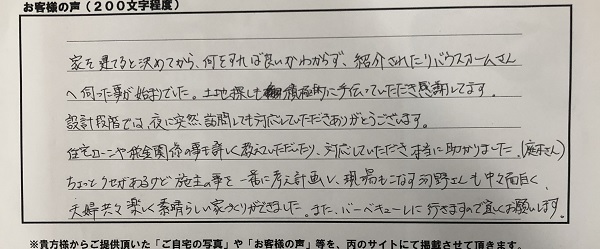 お客様の声（２００文字程度）
家を建てると決めてから、何をすれば良いかわからず、紹介されたリバウスホームさん
へ伺った事が始まりでした。土地探しも積極的に手伝っていただき感謝してます。
設計段階では、夜に突然訪問しても対応していただきありがとうございます。
住宅ローンや税金関係の事も詳しく教えていただいたり、対応していただき本当に助かりました。(庭木さん)
ちょっとクセがあるけど施主の事を一番に考え計画し、現場もこなす河野さんも中々面白く、
夫婦共々楽しく素晴らしい家づくりができました。また、バーベキューしに行きますので宜しくお願いします。
※貴方様からご提供頂いた「ご自宅の写真」や「お客様の声」等を、丙のサイトにて掲載させて頂きます。